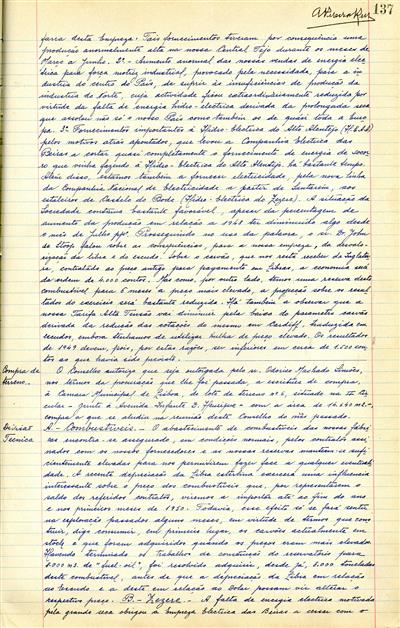 137
farca desta Empreza. Tais fornecimentos tiveram por consequência uma
produção anormalmente alta na nossa Central Tejo durante os meses de
Março a Junho. 2º- Aumento anormal das nossas vendas de energia eléc-
trica para força motriz industrial, provocado pela necessidade, para a in-
dustria do centro do País, de suprir às insuficiências de produção da
industria do Norte, cuja actividade ficou extraordinàriamente reduzida por
virtude da falta de energia hidro-eléctrica derivada da prolongada seca
que assolou não só o nosso País como também os de quási toda a Euro-
pa. 3º- Fornecimentos importantes à Hidro-Eléctrica do Alto Alentejo (H.E.A.A.)
pelos motivos atrás apontados, que levou a Companhia Eléctrica das
Beiras a cortar quási completamente o fornecimento de energia de socor-
ro que vinha fazendo à Hidro-Eléctrica do Alto Alentejo há bastante tempo.
Além disso, estamos também a fornecer electricidade, pela nova linha
da Companhia Nacional de Electricidade a partir de Santarém, aos
estaleiros de Castelo do Bode (Hidro-Eléctrica do Zezere). A situação da
Sociedade continua bastante favorável, apesar da percentagem de
aumento da produção em relação a 1948 ter diminuido algo desde
o mês de Julho ppº. Prosseguindo no uso da palavra, o sr. Dr. John
de Stoop falou sobre as consequências, para a nossa empreza, da desvalo-
rização da libra e do escudo. Sobre o carvão, que nos resta receber de Inglater-
ra, contratado ao preço antigo para pagamento em Libras, a economia será
da ordem de 4.000 contos. Mas como, por outro lado, temos uma reserva deste
combustível para 6 meses a preço mais elevado, a projecção sobre os resul-
tados do exercício será bastante reduzida. Há também a observar que a
nossa Tarifa Alta Tensão vai diminuir pela baixa do parametro carvão
derivada da redução das cotações do mesmo em Cardiff, traduzida em
escudos, embora tenhamos de utilizar hulha de preço elevado. Os resultados
de 1949 devem, pois, por estas razões, ser inferiores em cerca de 1.500 con-
tos ao que havia sido previsto.
Compra de
terreno.
O Conselho autoriza que seja outorgada pelo sr. Odorico Machado Simões,
nos termos da procuração que lhe foi passada, a escritura de compra,
à Câmara Municipal de Lisboa, do lote de terreno nº 6, situado na
cular - junto à Avenida Infante D. Henrique - com a área de
compra a que se aludiu na reunião deste Conselho do mês passado.
Direcção
Técnica
A - Combustíveis. - O abastecimento de combustíveis das nossas fábri-
cas encontra-se assegurado, em condições normais, pelos contratos assi-
nados com os nossos fornecedores e as nossas reservas mantêm-se sufi-
cientemente elevadas para nos permitirem fazer face a qualquer eventuali-
dade. A recente depreciação da Libra esterlina exercerá uma influência
interessante sobre o preço dos combustíveis que, por representarem o
saldo dos referidos contratos, viremos a importar até ao fim do ano
e nos primeiros meses de 1950. Todavia, esse efeito só se fará sentir
na exploração passados alguns meses, em virtude de termos que cons-
truir, digo consumir, em primeiro lugar, os carvões actualmente em
stock e que foram adquiridos quando os preços eram mais elevados.
Havendo terminado os trabalhos de construção do reservatório para
8.000 m3. de "fuel-oil", foi resolvido adquirir, desde já, 8.000 toneladas
deste combustível, antes de que a depreciação da Libra em relação
ao escudo e a deste em relação ao dolar possam vir alterar o
respectivo preço. B - Zezere. - A falta de energia eléctrica motivada
pela grande seca obrigou a Empreza Eléctrica das Beiras a cessar com o